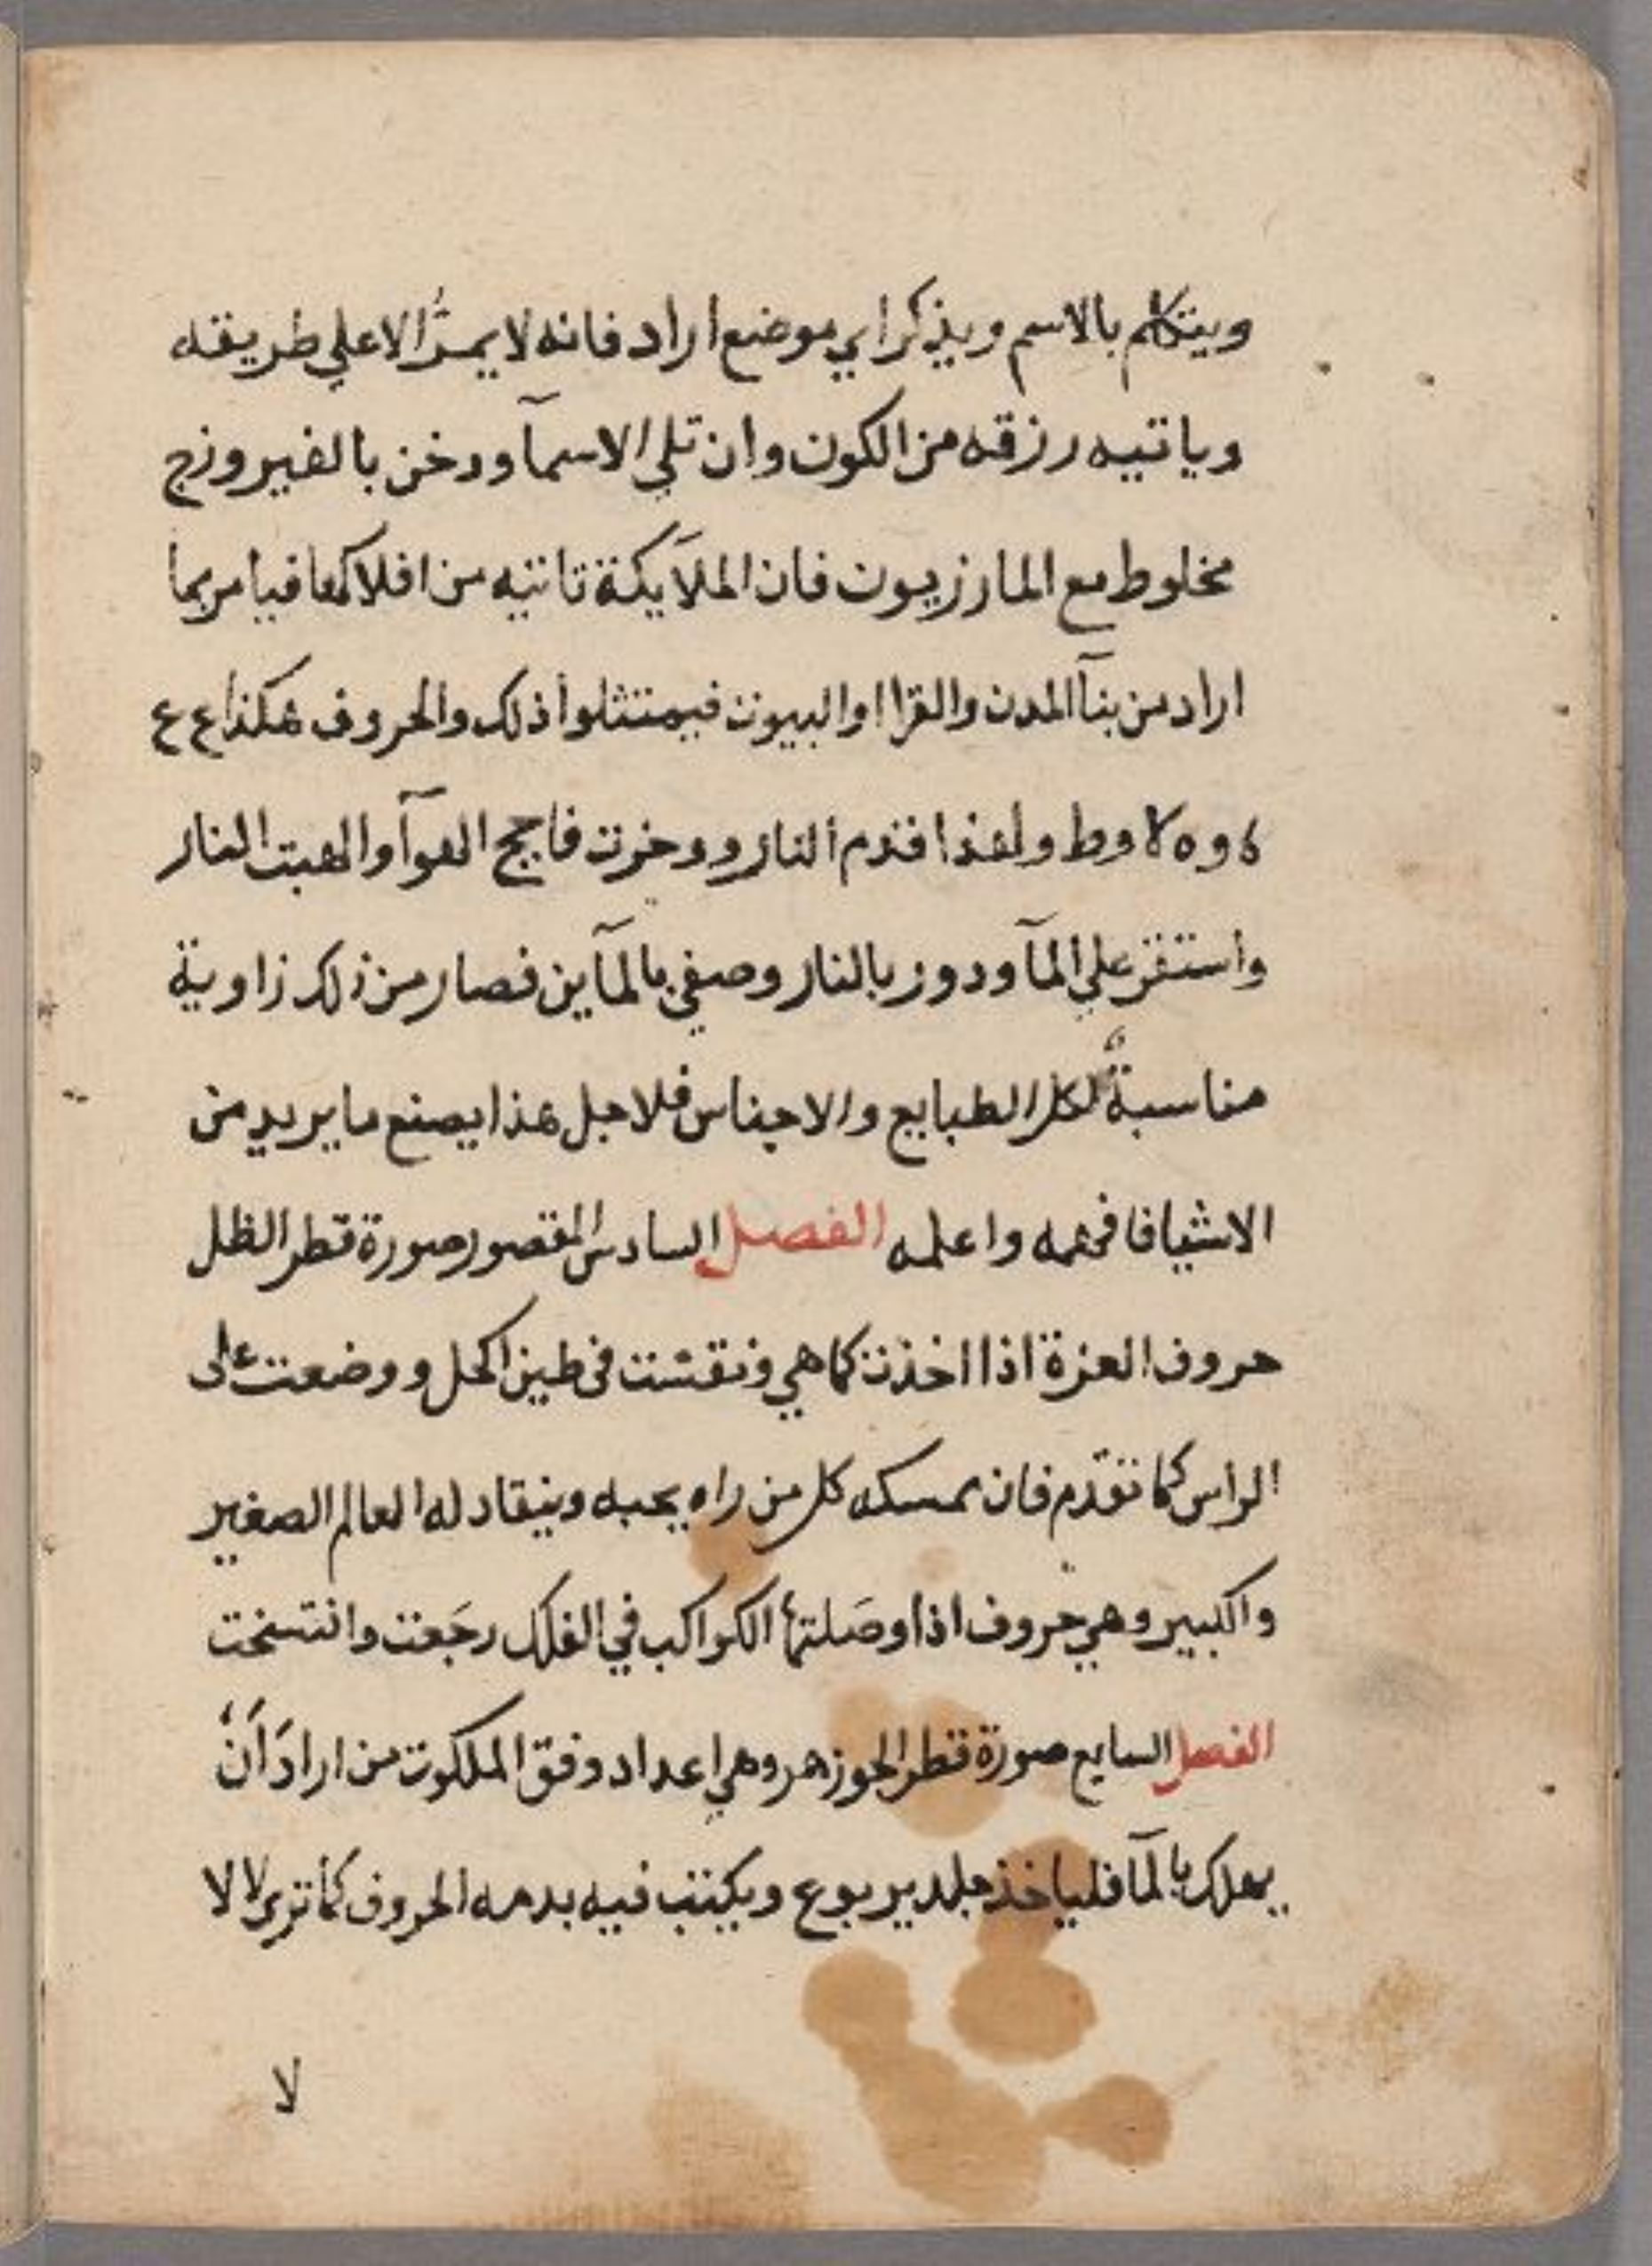 ويتكلم بالاسم ويذكر اي موضع اراد فانه لا يمرُّ الا علي طريقه
وياتيه رزقه من الكون وان تلي الاسمآ ودخن بالفيروزج
مخلوط مع المازريون فان الملآيكة تاتيه من افلاكها فيامر بما
اراد من بنآ المدن والقرا او البيوت فيمتثلوا ذلك والحروف هكذا ع ع
وط ولهذا قدم النار ودخرت فاجج الهوآ والهبت النار
واستقر علي المآ ودور بالنار وصفي بالمآين فصار من ذلك زاوية
مناسبةٌ لكل الطبايع والاجناس فلاجل هذا يصنع ما يريد من
الاشيا فافهمه واعلمه الفصل السادس المقصور صورة قطر الظل
حروف العزة اذا اخذت كما هي ونقشت في طين الكحل ووضعت على
الراس كما تقدم فان يمسكه كل من راه يحبه وينقاد له العالم الصغير
والكبير وهي حروف اذا وصَلتها الكواكب في الفلك رجَعت وانتسخت
الفصل السابع صورة قطر الجوزهر وهي اعداد وفق الملكوت من ارادَ اَنْ
يهلك بالمآ فلياخذ جلد يربوع ويكتب فيه بدمه الحروف كما ترى لا لا
لا